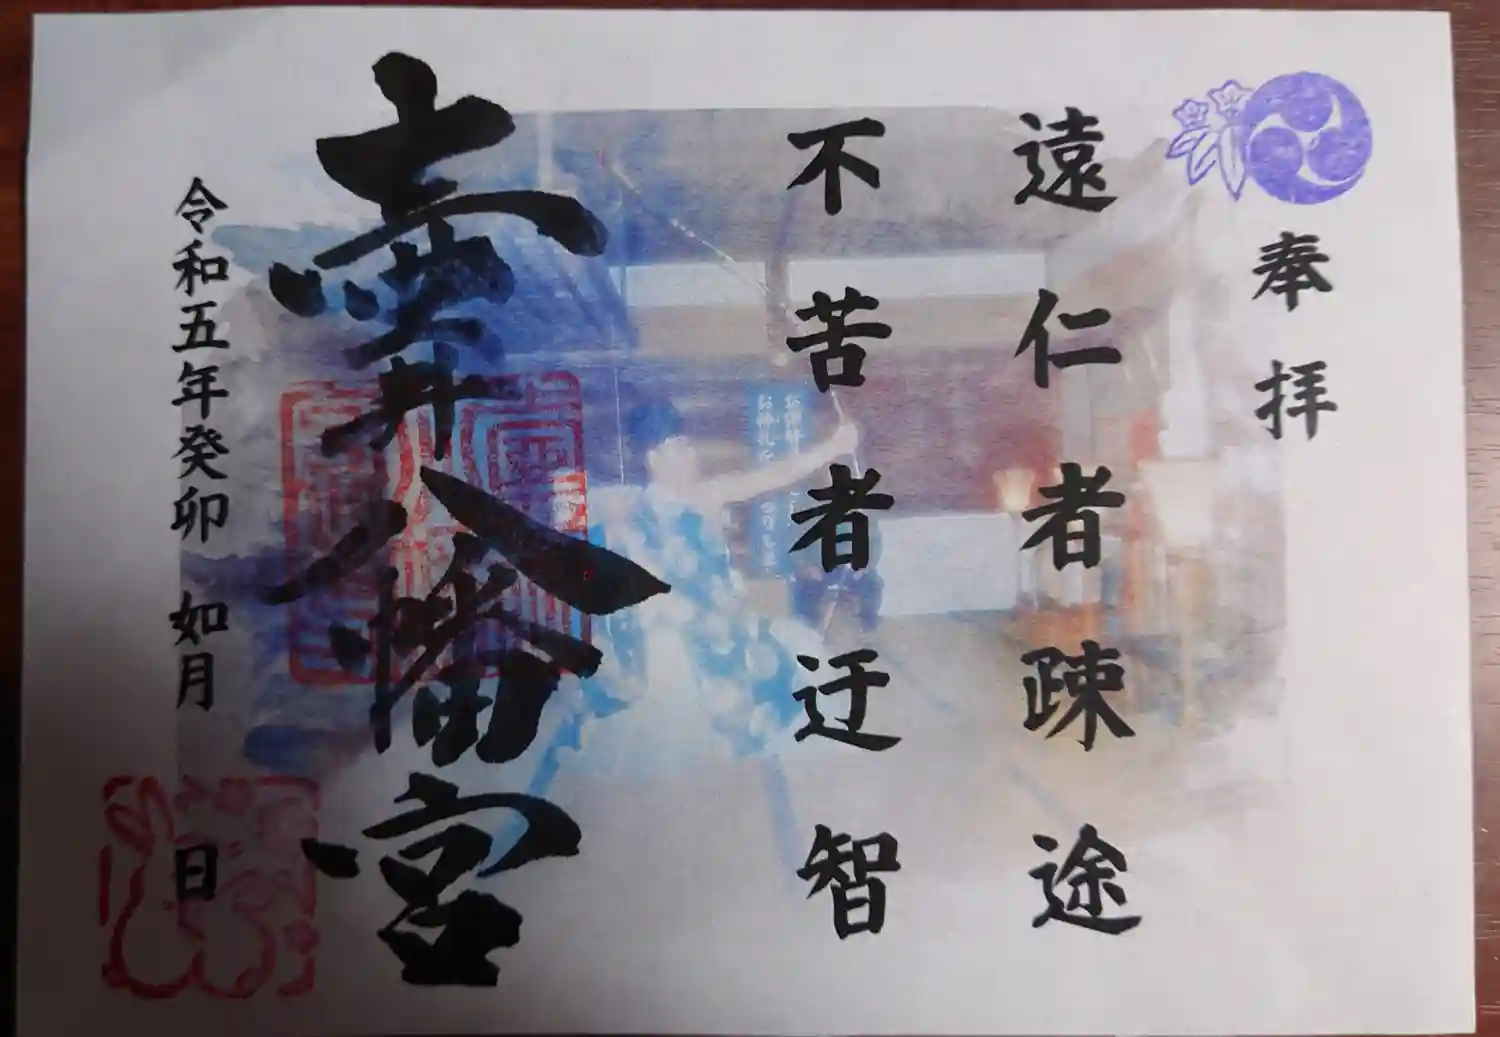 奉拝
遠仁者疎途
不苦者迂智
壷井八幡宮
令和五年癸卯 如月 日